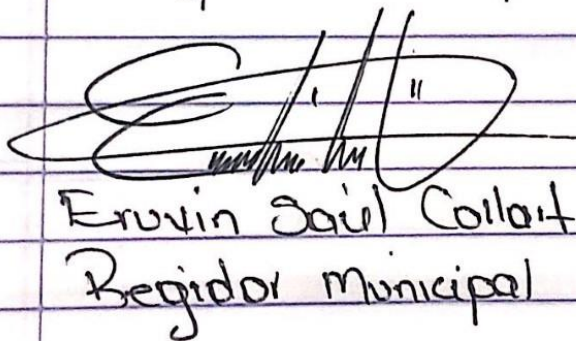 Eruvin Saúl Collart
Regidor Municipal